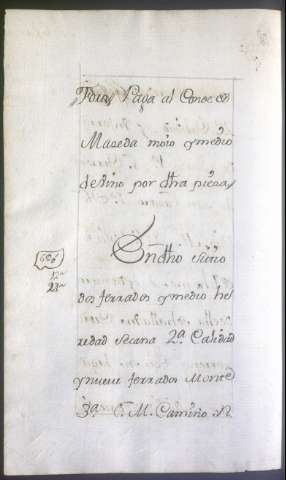 Paga al Conde
Maceda moio y medio
de vino por dha pieza
En dho sitio
dos ferrados y medio he
redad secana 2ª Calidad
y nueve ferrados Monte
3ª C. M. Camino N